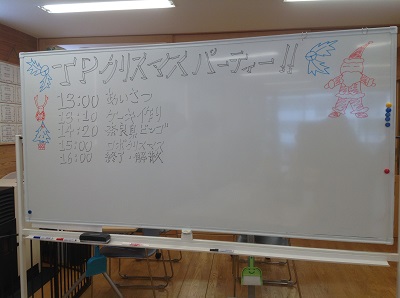 JPクリスマスパーティー!!
13:00 あいさつ
13:10 ケーキ作り
14:20 衣装乱ビンゴ
15:00
16:00 終了・解散